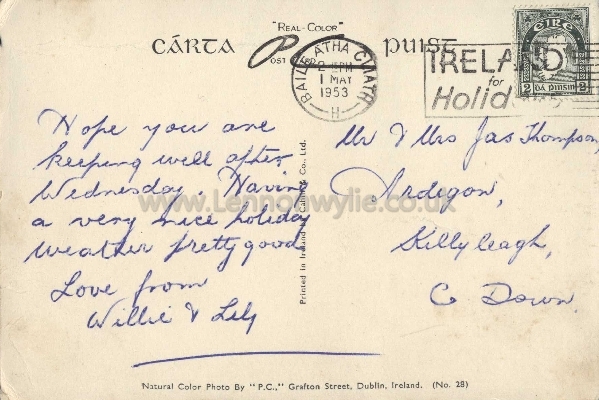 "REAL-COLOR"
CÁRTA PUIST
POST CARD
BAILE ÁTHA CLIATH
2 PM
1 MAY
1953
H
IRELAND
for
Holidays
EIRE
2 DÁ PINSIN 2
Hope you are
keeping well after
Wednesday. Having
a very nice holiday
weather pretty good
Love from
Willie & Lily
Printed in Ireland by Co., Ltd.
Mr & Mrs Jas Thompson,
Ardigon,
Killyleagh,
Co Down.
www.Lennonwylie.co.uk
Natural Color Photo By "P.C.," Grafton Street, Dublin, Ireland. (No. 28)